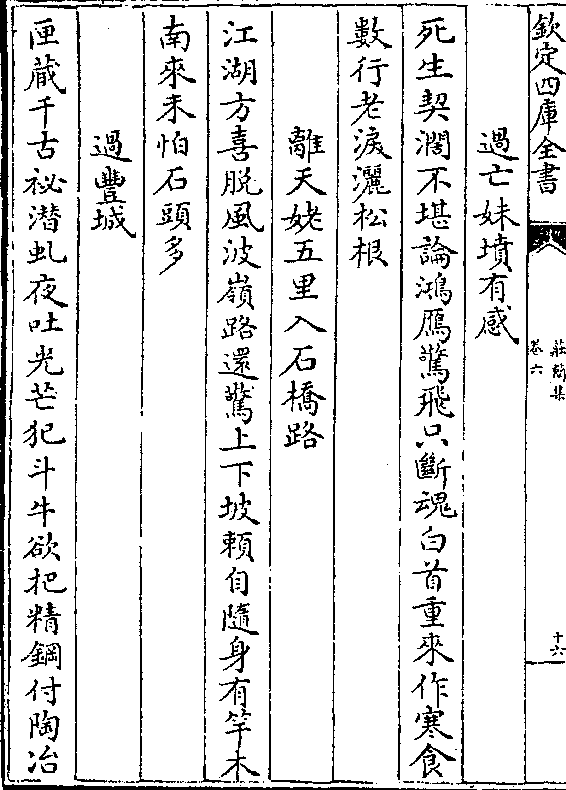 欽定四庫全書
莊簡集
卷六
十六
過亡妹墳有感
死生契濶不堪論鴻鴈驚飛只斷魂白首重來作寒食
數行老淚灑松根
離天姥五里入石橋路
江湖方喜脫風波嶺路還驚上下坡頼自隨身有竿木
南來未怕石頭多
過豐城
匣蔵千古祕潛虬夜吐光芒犯斗牛欲把精鋼付陶冶